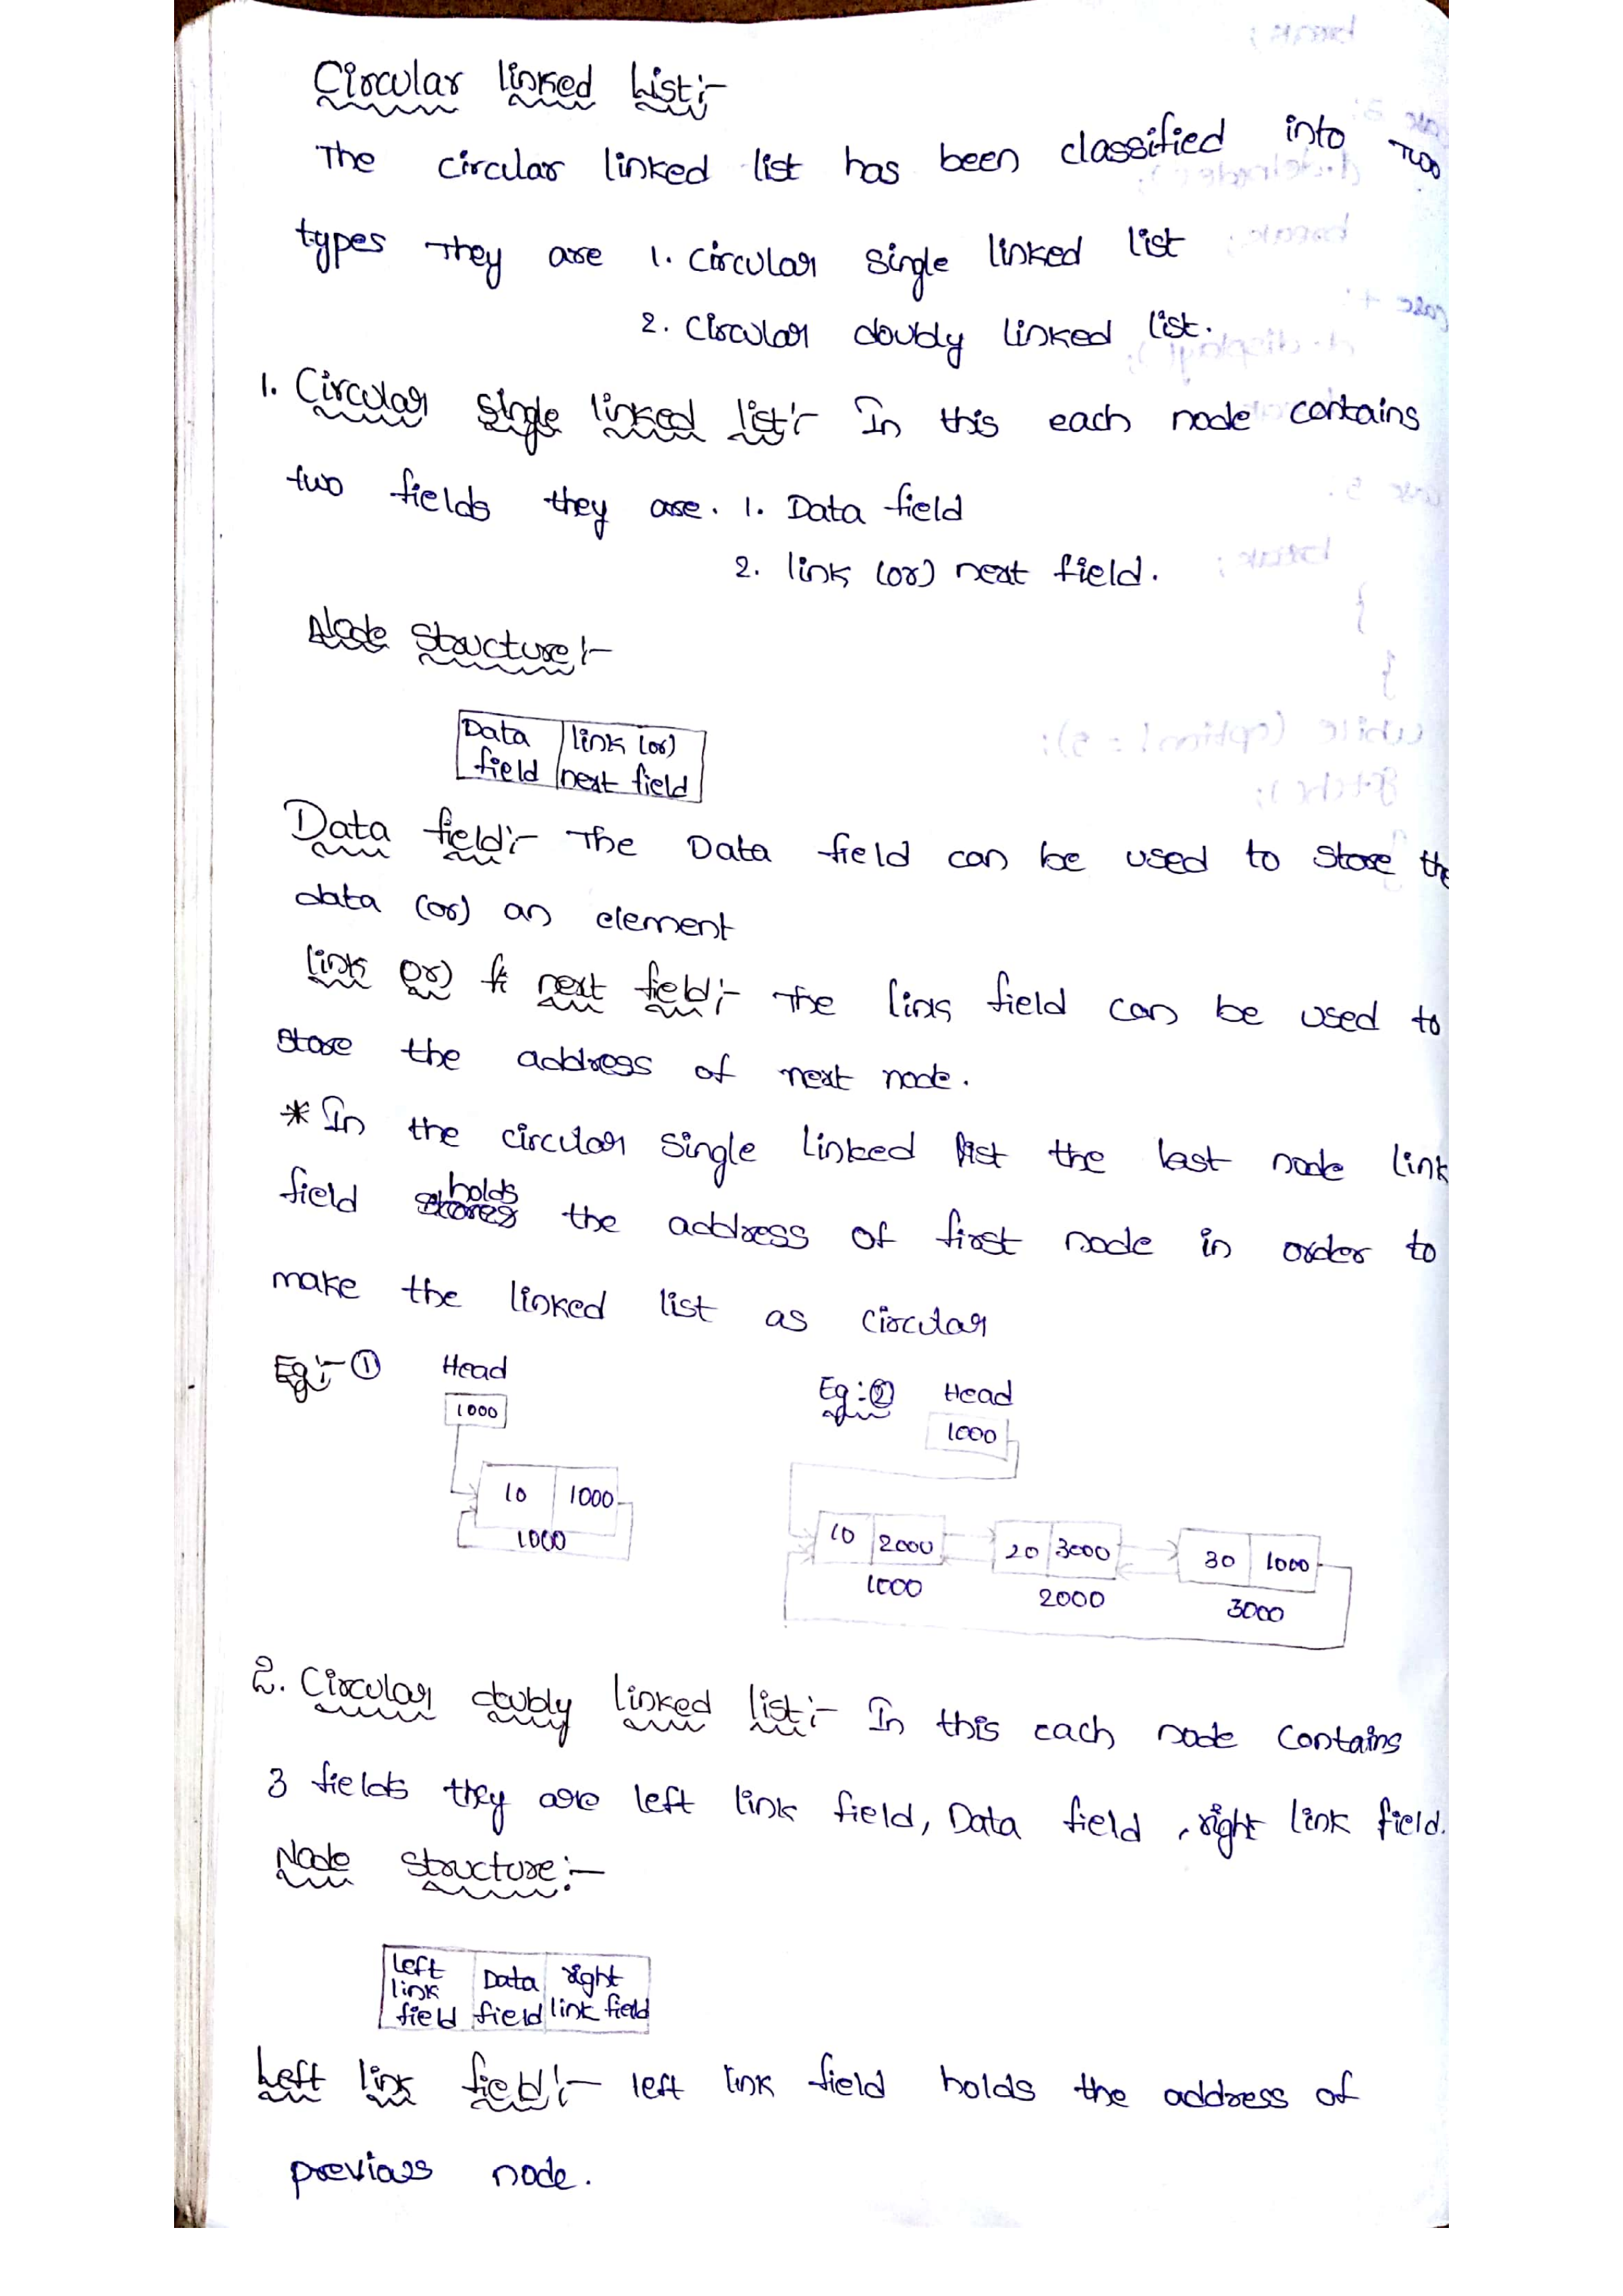 Circular linked List:-
The circular linked list has been classified into Two
types They are 1. Circular single linked list
2. Circular doubly linked list.
1. Circular single linked list:- In this each node contains
two fields they are. 1. Data field
2. link (or) next field.
Node Structure:-
Data field link (or) next field
Data field:- The Data field can be used to store the
data (or) an element
link (or) next field:- The link field can be used to
store the address of next node.
* In the circular single linked list the last node link
field holds the address of first node in order to
make the linked list as circular
Eg:- ① Head
1000
10 1000
1000
Eg:② Head
1000
10 2000 20 3000 30 1000
1000 2000 3000
2. Circular doubly linked list:- In this each node contains
3 fields they are left link field, Data field, right link field.
Node Structure:-
left link field Data field right link field
Left link field:- left link field holds the address of
previous node.